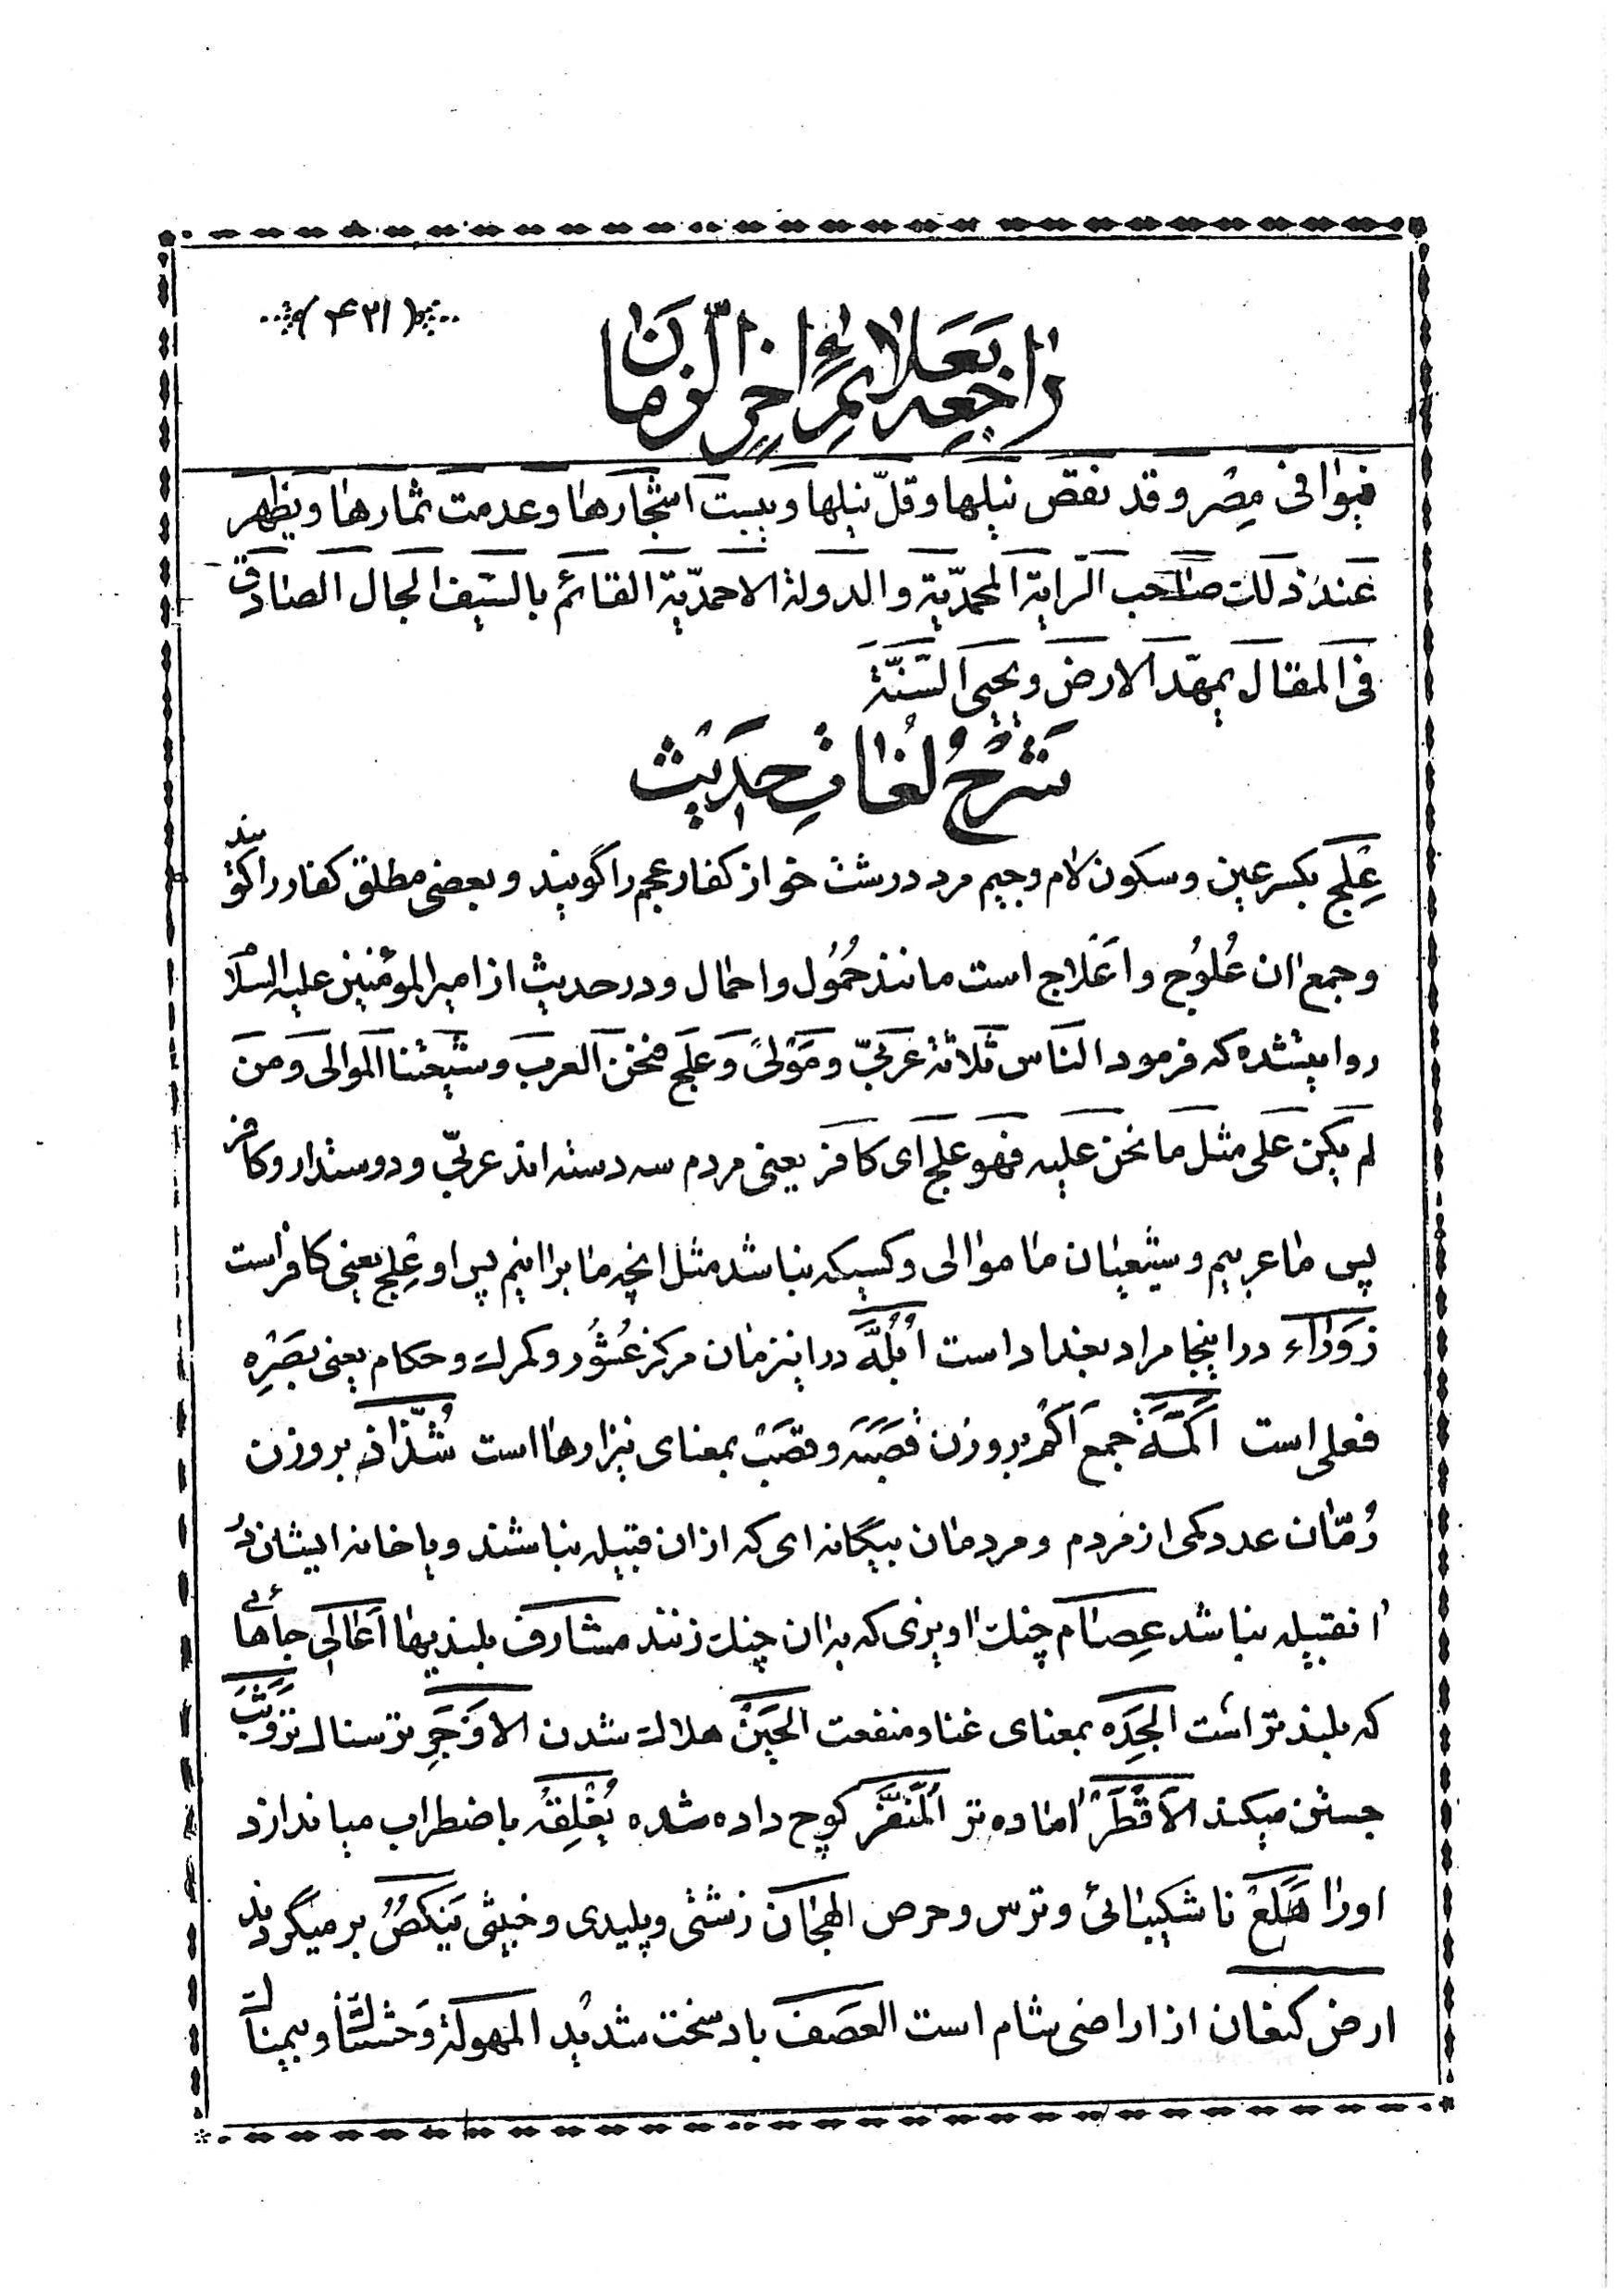 (۴۲۱)
راجعه بعلائم اخر الزمان
فیوافی مصر وقد نقص نیلها وقلّ نیلها ویبست اشجارها وعدمت ثمارها ویظهر
عند ذلك صاحب الرایة المحمدیّة والدولة الاحمدیّة القائم بالسّیف الحال الصادق
فی المقال یمهّد الارض ویحیی السّنّة
شَرْحُ لُغاتِ حَدیث
عِلْج بکسر عین وسکون لام وجیم مرد درشت خو از کفار عجم را گویند وبعضی مطلق کفار را گویند
وجمع ان عُلُوُج واَعْلاج است مانند حُمُول واحمال ودر حدیث از امیر المؤمنین علیه السلام
روایتشده که فرمود الناس ثلاثة عَربیّ ومَوْلیً وَعلج فنحن العرب وشیعتنا الموالی ومن
لم یکن علی مثل ما نحن علیه فهو علج ای کافر یعنی مردم سه دسته اند عربیّ ودوستدار وکافر
پس ما عربیم وشیعیان ما موالی وکسیکه نباشد مثل انچه ما برانیم پس او عِلج یعنی کافر است
زَوْرٰاء در اینجا مراد بغداد است اُبُلَّه در اینزمان مرکز عُشُور وکمرك وحکام یعنی بصَرْه
فعلی است اَکَمَة جمع اَکَم بروزن قَصَبَه وقصَبْ بمعنای نیزارها است شُذّاذ بروزن
رُمّان عدد کمی از مردم ومردمان بیگانه ای که از ان قبیله نباشند ویا خانه ایشان در
انقبیله نباشد عِصام چنك اویزی که بر ان چنك زنند مشارف بلندیها اَعالی جاهائی
که بلند تر است الجِدَه بمعنای غنا ومنفعت الحَیْنْ هلاك شدن الاَوْجَر ترسناك تر وَثَبَ
جستن میکند الاَقْطَرْ اماده تر المُنَفَّر کوچ داده شده یُقْلِقُه باضطراب میاندازد
اورا هَلَعْ ناشکیبائی وترس وحرص الهجان زشتی وپلیدی وخبیثی یَنکصُ بر میگردید
ارض کنعان از اراضی شام است العَصَف باد سخت شدید المهولة وَحشتناك وبیمناك